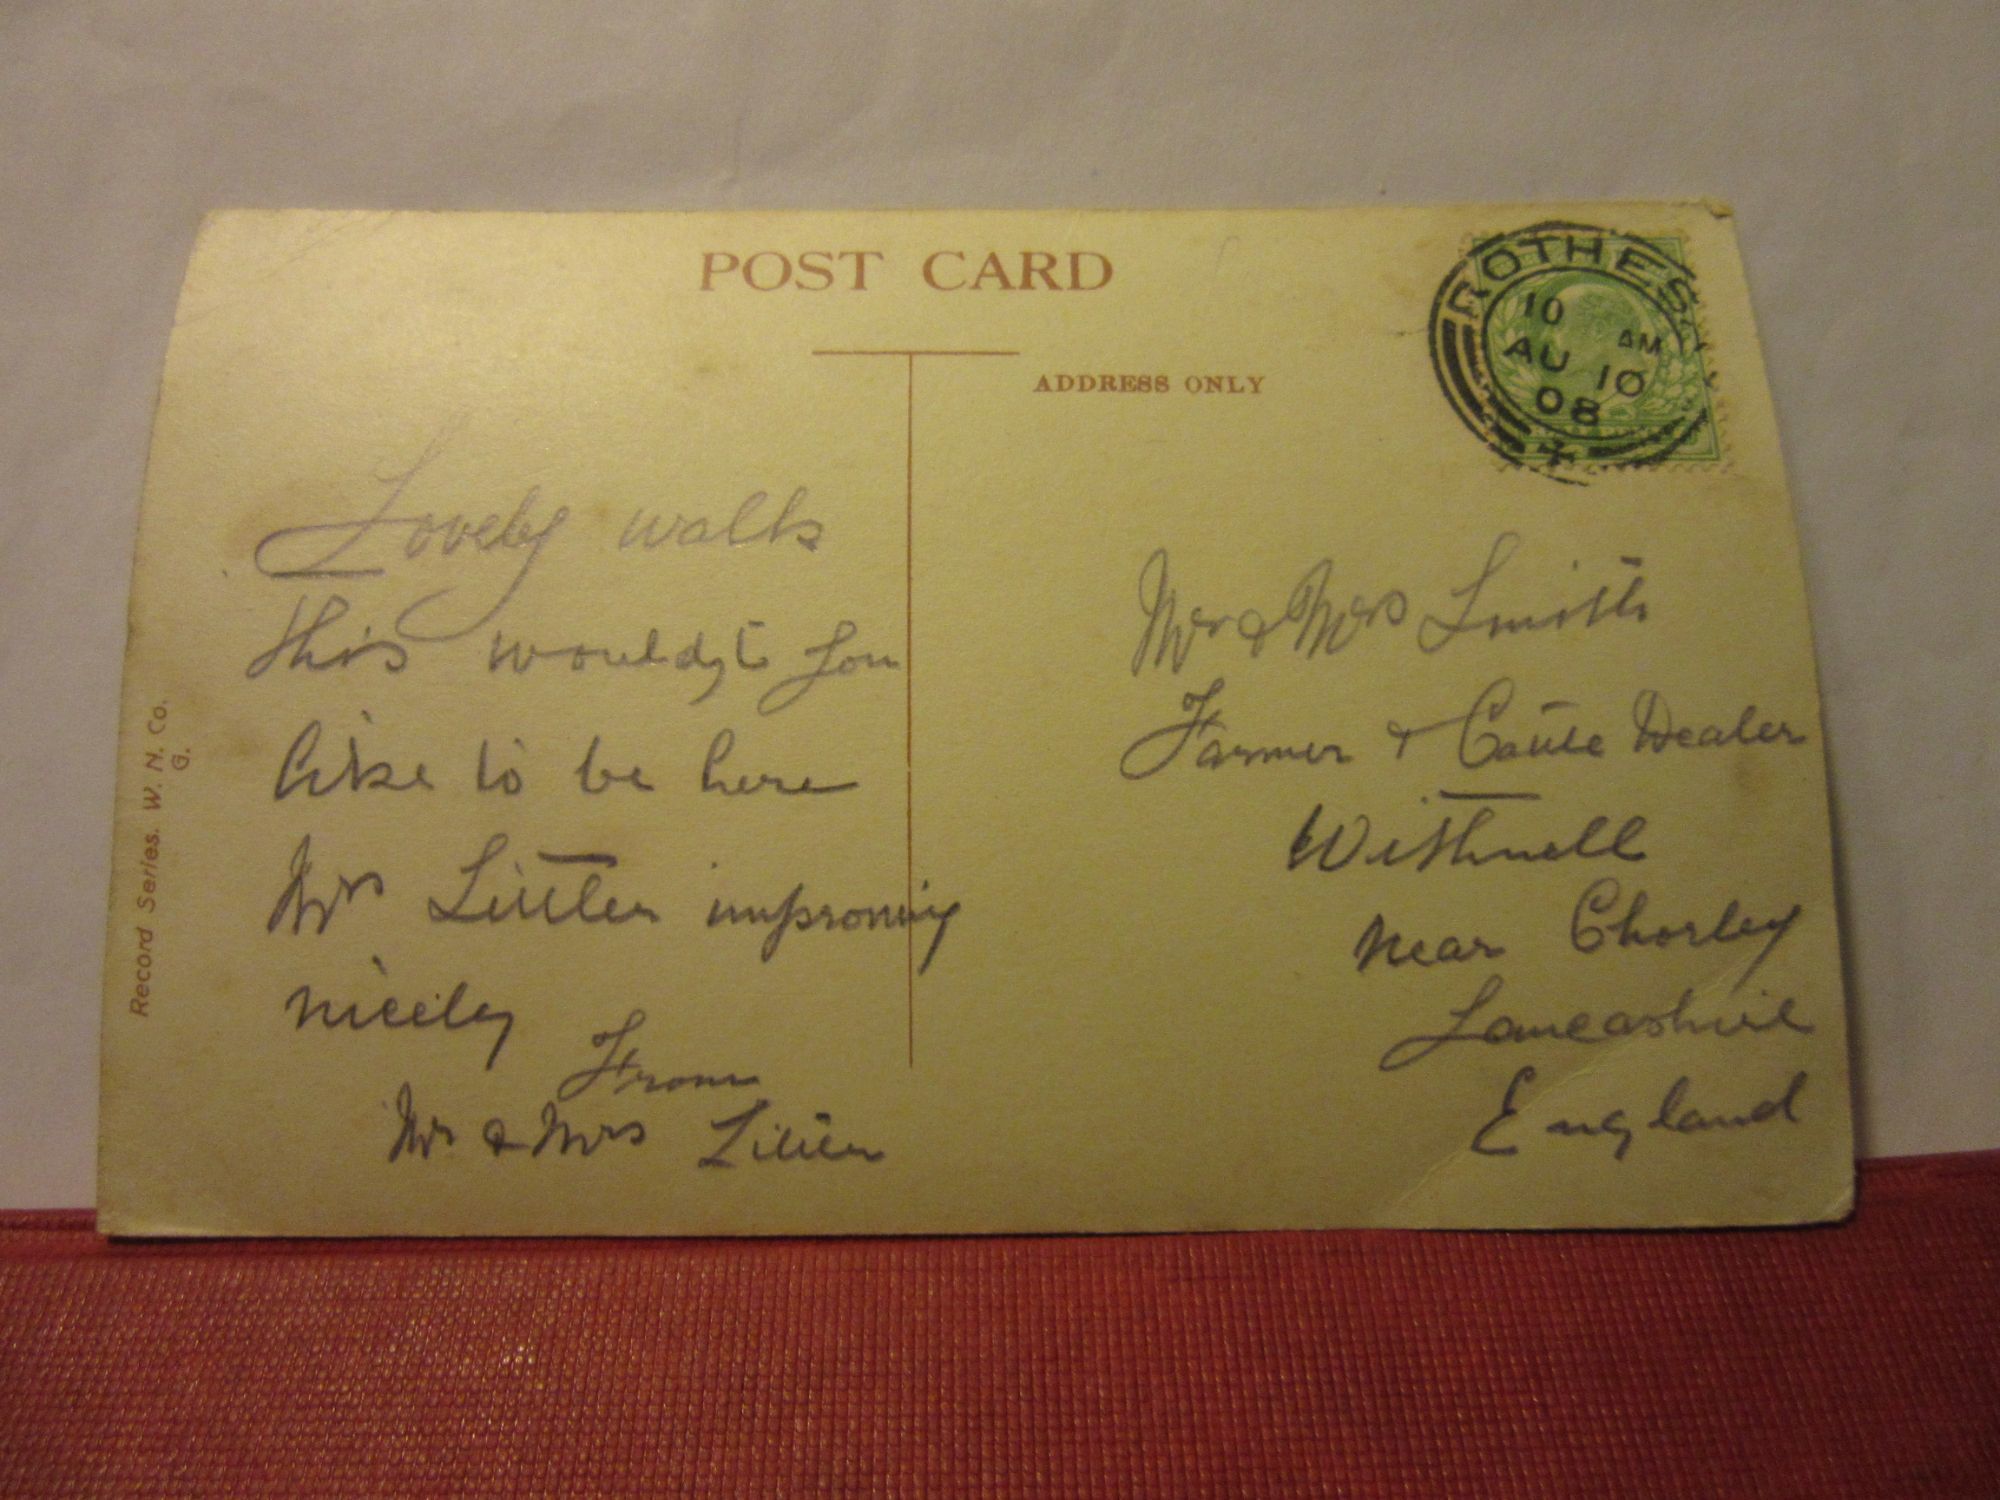 POST CARD
ADDRESS ONLY
ROTHES
10 AM
AU 10
08
Lovely walk
this wouldn't you
like to be here
Mrs Littler improving
nicely
From
Mr & Mrs Littler
Mr & Mrs Smith
Farmer & Cattle Dealer
Withnell
near Chorley
Lancashire
England
Record Series. W. N. Co.
G.